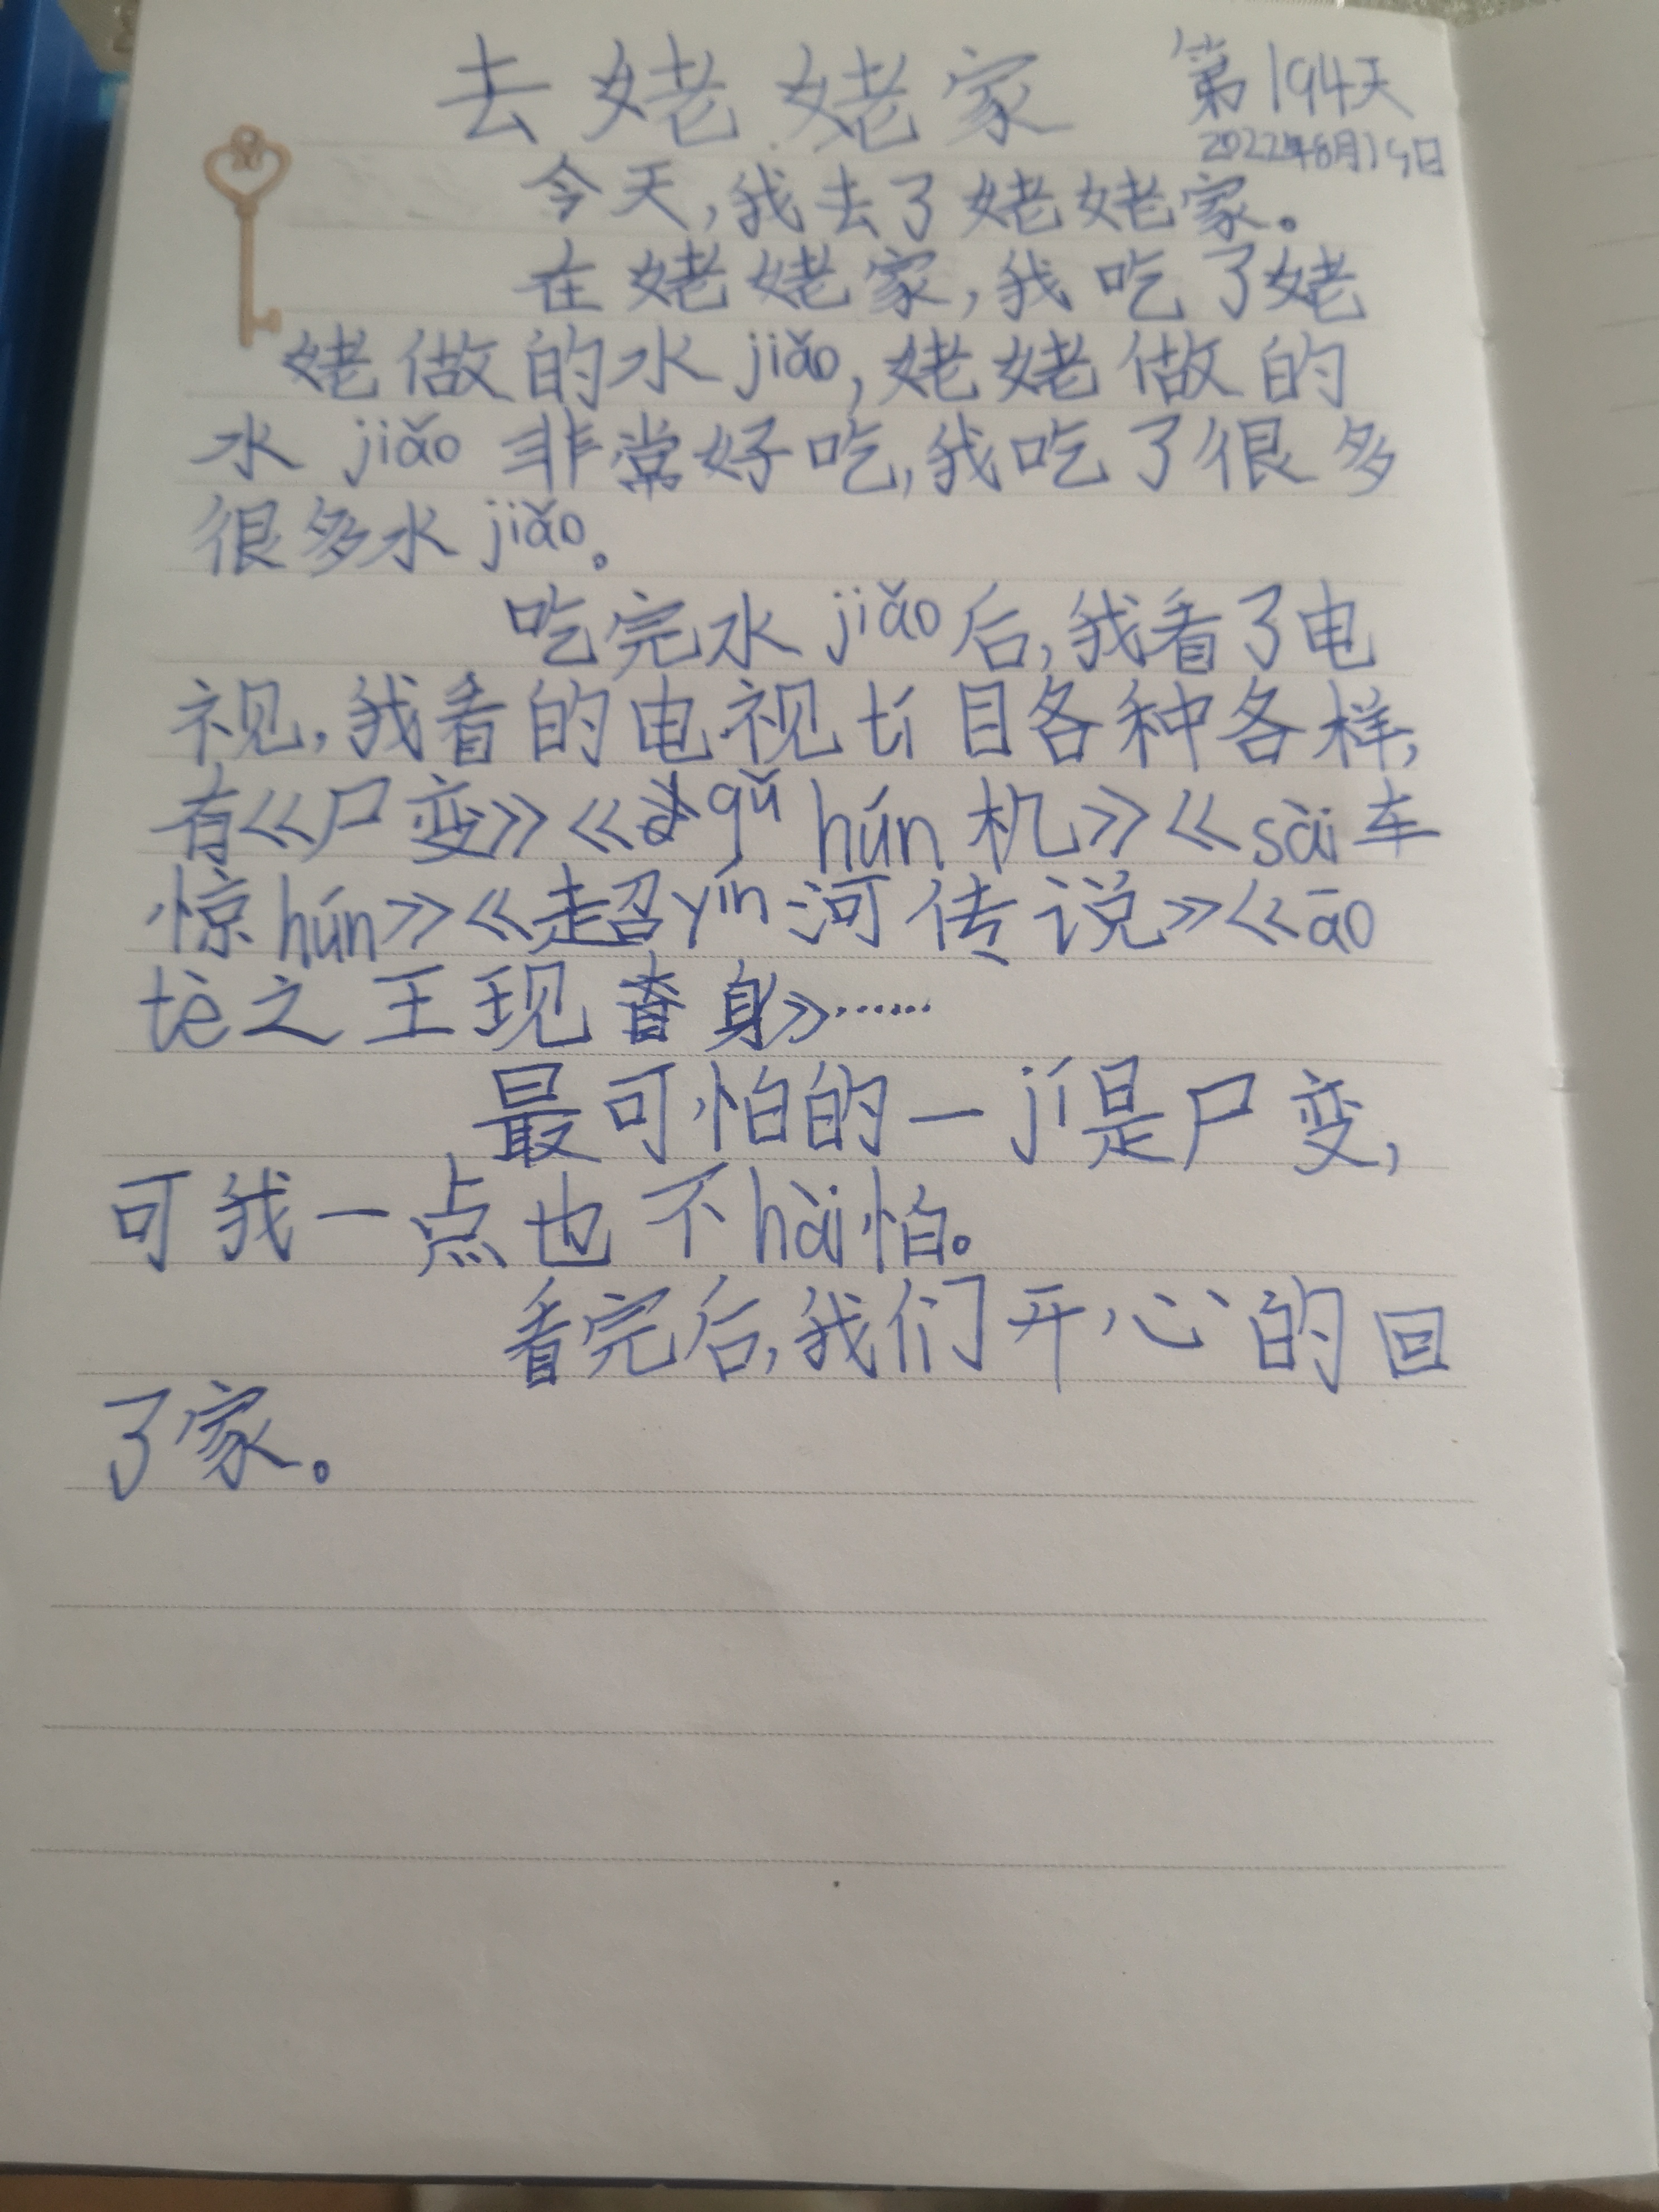 去姥姥家 第194天
2022年8月14日
今天,我去了姥姥家。
在姥姥家,我吃了姥
姥做的水jiǎo,姥姥做的
水jiǎo非常好吃,我吃了很多
很多水jiǎo。
吃完水jiǎo后,我看了电
视,我看的电视tí目各种各样,
有《尸变》《gǔ hún机》《sài车
惊hún》《超yín河传说》《āo
tè之王现 身》……
最可怕的一jí是尸变,
可我一点也不hài怕。
看完后,我们开心的回
了家。